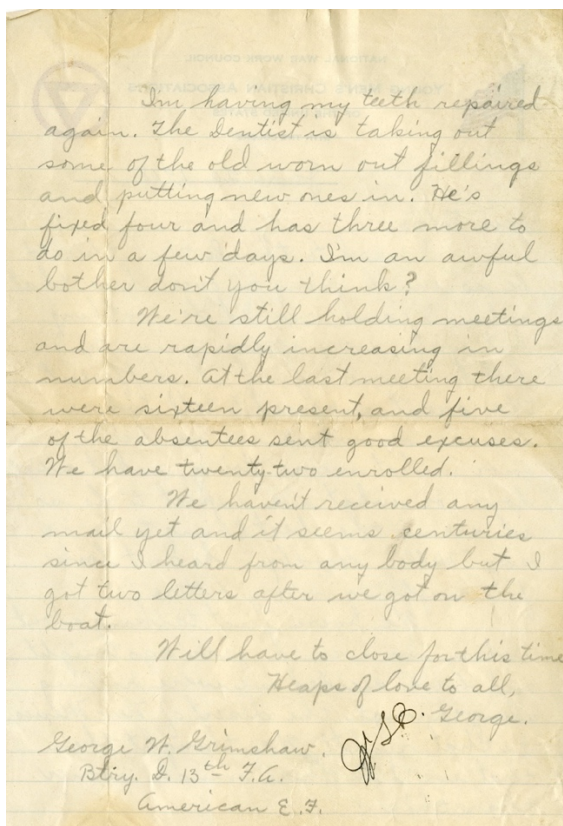 I'm having my teeth repaired
again. The Dentist is taking out
some of the old worn out fillings
and putting new ones in. He's
fixed four and has three more to
do in a few days. I'm an awful
bother don't you think?
We're still holding meetings
and are rapidly increasing in
numbers. At the last meeting there
were sixteen present, and five
of the absentees sent good excuses.
We have twenty-two enrolled.
We haven't received any
mail yet and it seems centuries
since I heard from any body but I
got two letters after we got on the
boat.
Will have to close for this time
Heaps of love to all,
George.
George W. Grimshaw.
Btry. D. 13th F.A.
American E.F.